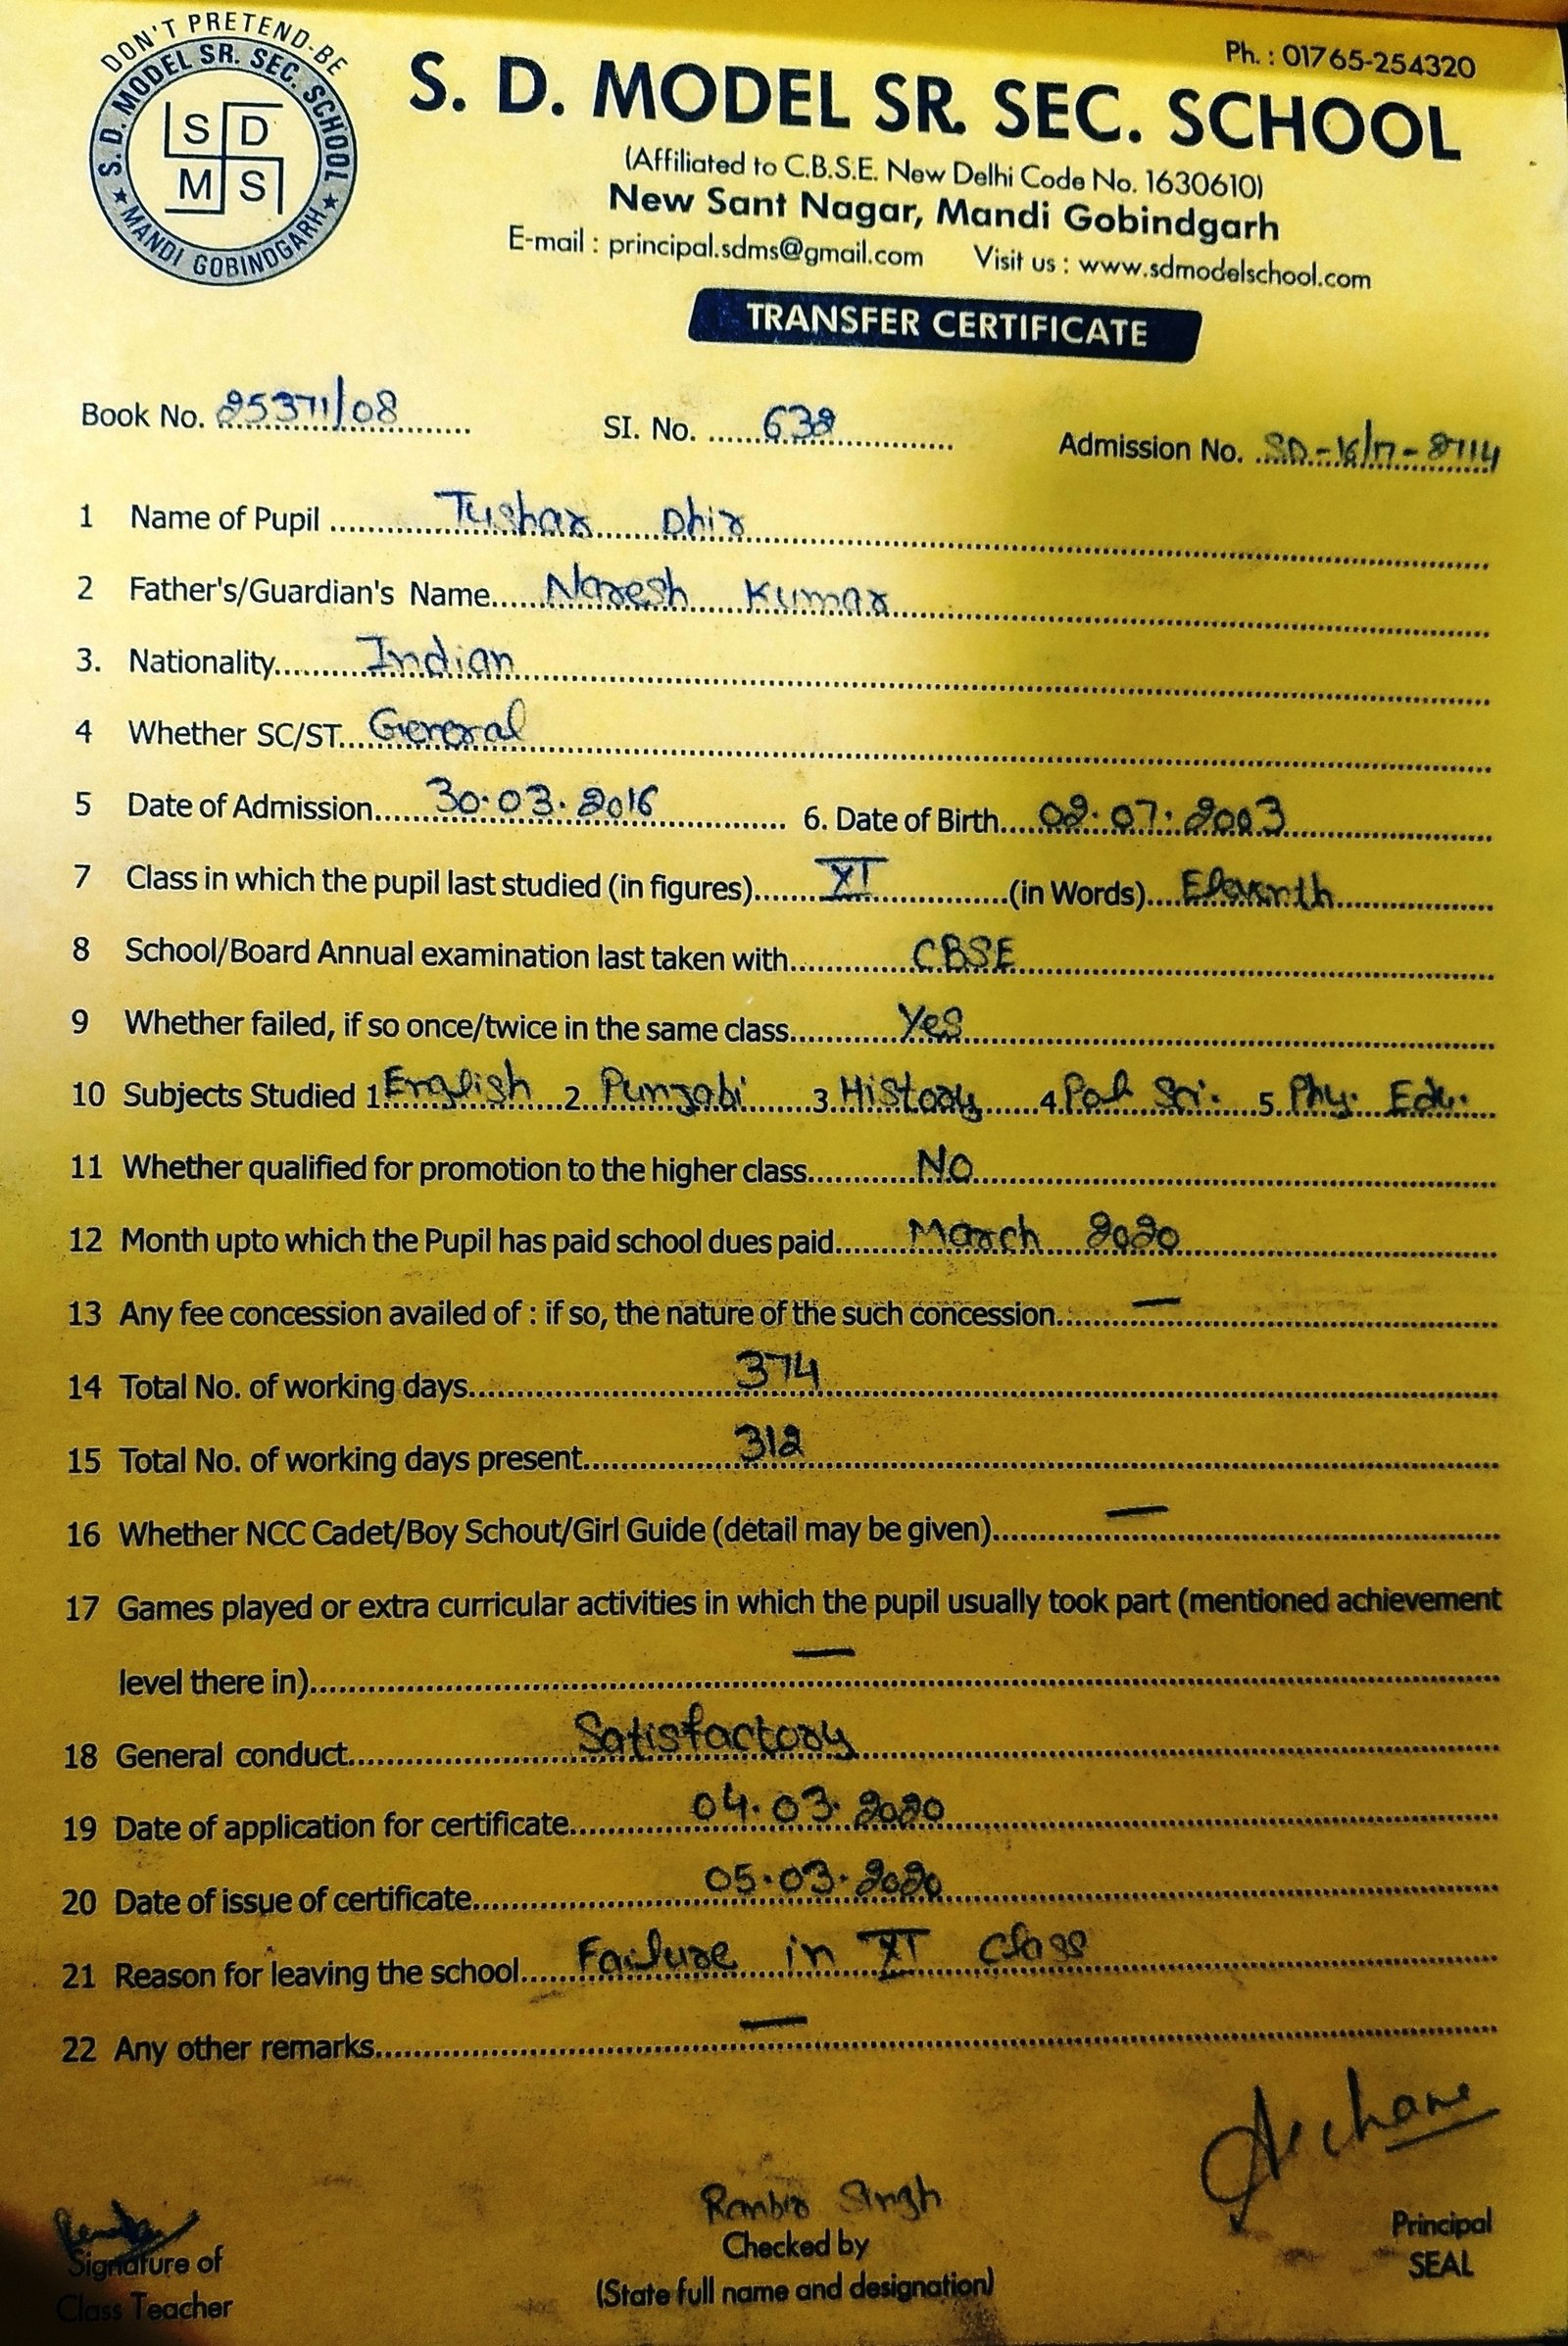 DON'T PRETEND-BE
S. D. MODEL SR. SEC. SCHOOL
S D
M S
★ MANDI GOBINDGARH ★
Ph. : 01765-254320
S. D. MODEL SR. SEC. SCHOOL
(Affiliated to C.B.S.E. New Delhi Code No. 1630610)
New Sant Nagar, Mandi Gobindgarh
E-mail : principal.sdms@gmail.com Visit us : www.sdmodelschool.com
TRANSFER CERTIFICATE
Book No. 25371/08 SI. No. 632 Admission No. SD-16/17-2714
1 Name of Pupil Tushar Dhir
2 Father's/Guardian's Name Naresh Kumar
3. Nationality Indian
4 Whether SC/ST General
5 Date of Admission 30.03.2016 6. Date of Birth 02.07.2003
7 Class in which the pupil last studied (in figures) XI (in Words) Eleventh
8 School/Board Annual examination last taken with CBSE
9 Whether failed, if so once/twice in the same class Yes
10 Subjects Studied 1. English 2. Punjabi 3. History 4. Pol Sci. 5. Phy. Edu.
11 Whether qualified for promotion to the higher class No
12 Month upto which the Pupil has paid school dues paid March 2020
13 Any fee concession availed of : if so, the nature of the such concession —
14 Total No. of working days 374
15 Total No. of working days present 312
16 Whether NCC Cadet/Boy Schout/Girl Guide (detail may be given) —
17 Games played or extra curricular activities in which the pupil usually took part (mentioned achievement
level there in) —
18 General conduct Satisfactory
19 Date of application for certificate 04.03.2020
20 Date of issue of certificate 05.03.2020
21 Reason for leaving the school Failure in XI Class
22 Any other remarks —
Ranbir Singh
Signature of
Class Teacher
Checked by
(State full name and designation)
Principal
SEAL